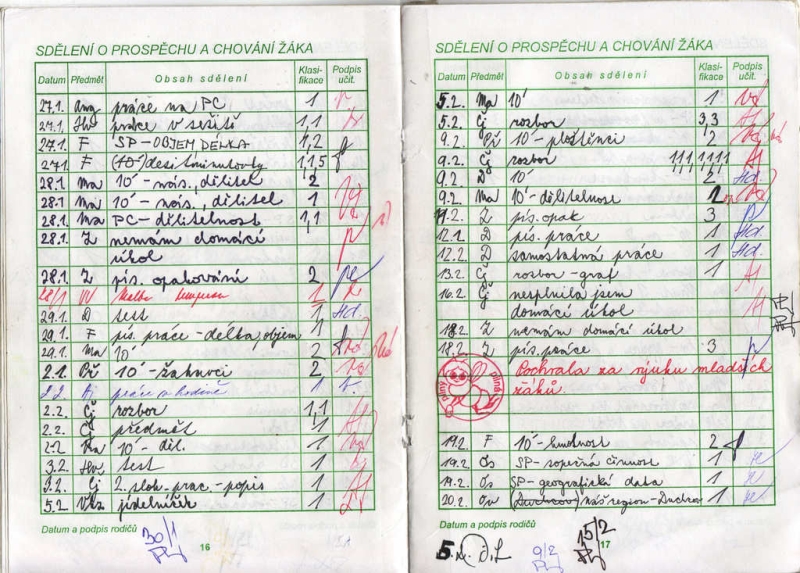 SDĚLENÍ O PROSPĚCHU A CHOVÁNÍ ŽÁKA
Datum Předmět Obsah sdělení Klasifikace Podpis učit.
27.1. Ang práce na PC 1
27.1. Hv práce v sešitě 1,1
27.1. F SP-OBJEM DÉLKA 1,2
27.1. F (10') desítiminutovky 1,1,5
28.1 Ma 10' - nás., dělitel 2
28.1 Ma 10' - nás., dělitel 1
28.1. Ma PC - dělitelnost 1,1
28.1. Z nemám domácí
úkol
28.1. Z pís. opakování 2
28/1 VV Malba tempera 1
29.1. D test 1 Hd.
29.1. F pís. práce - délka, objem 1
29.1. Ma 10' 2
2.1. Př 10' - žahavci 2
2.2. Aj práce v hodině 1
2.2. Čj rozbor 1,1
2.2. Čj předmět 1
2.2 Ma 10' - děl. 1
3.2. Hv. test 1
3.2. Čj 2. sloh. prac. - popis 1
5.2. Vkz jídelníček 1
Datum a podpis rodičů
30/1
16
SDĚLENÍ O PROSPĚCHU A CHOVÁNÍ ŽÁKA
Datum Předmět Obsah sdělení Klasifikace Podpis učit.
5.2. Ma 10' 1
5.2. Čj rozbor 3,3
9.2. Př 10' - ploštěnci 2
9.2. Čj rozbor 111 1111
9.2. D 10' 2 Hd.
9.2. Ma 10' - dělitelnost 1
11.2. Z pís. opak 3
12.2. D pís. práce 1 Hd.
12.2. D samostatná práce 1 Hd.
13.2. Čj rozbor - graf 1
16.2. Čj nesplnila jsem
domácí úkol
18.2. Z nemám domácí úkol
18.2. Z pís. práce 3
Pochvala za výuku mladších
žáků.
pilný
pilná
19.2. F 10' - hmotnost 2
19.2. Os SP - sopečná činnost 1
19.2. SP - geografická data 1
20.2. Ov (Duchcov) náš region - Duchcov 1
Datum a podpis rodičů
9/2
15/2
17